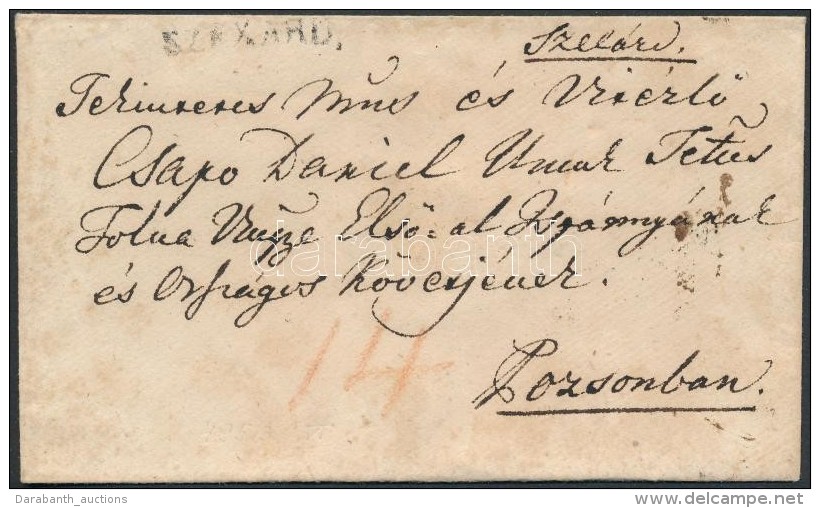 SZEXARD.
Szeěárd.
Tekintetes Nms és Vitézlő
Csapo Daniel Urnak Tettes
Tolna Vmgye Első-al Ispánnyának
és Országos Követjének.
darabanth
14
Pozsonban.
Darabanth_auctions
www.delcampe.net